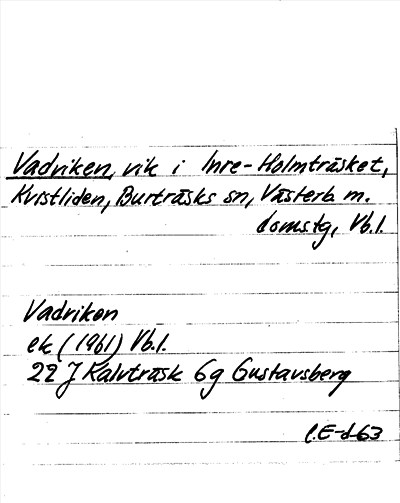 Vadviken, vik i Inre-Holmträsket,
Kvistliden, Burträsks sn, Västerb. m.
domstg, Vb. l.
Vadviken
ek (1961) Vb. l.
22 J Kalvträsk 6g Gustavsberg
l. E-d-63